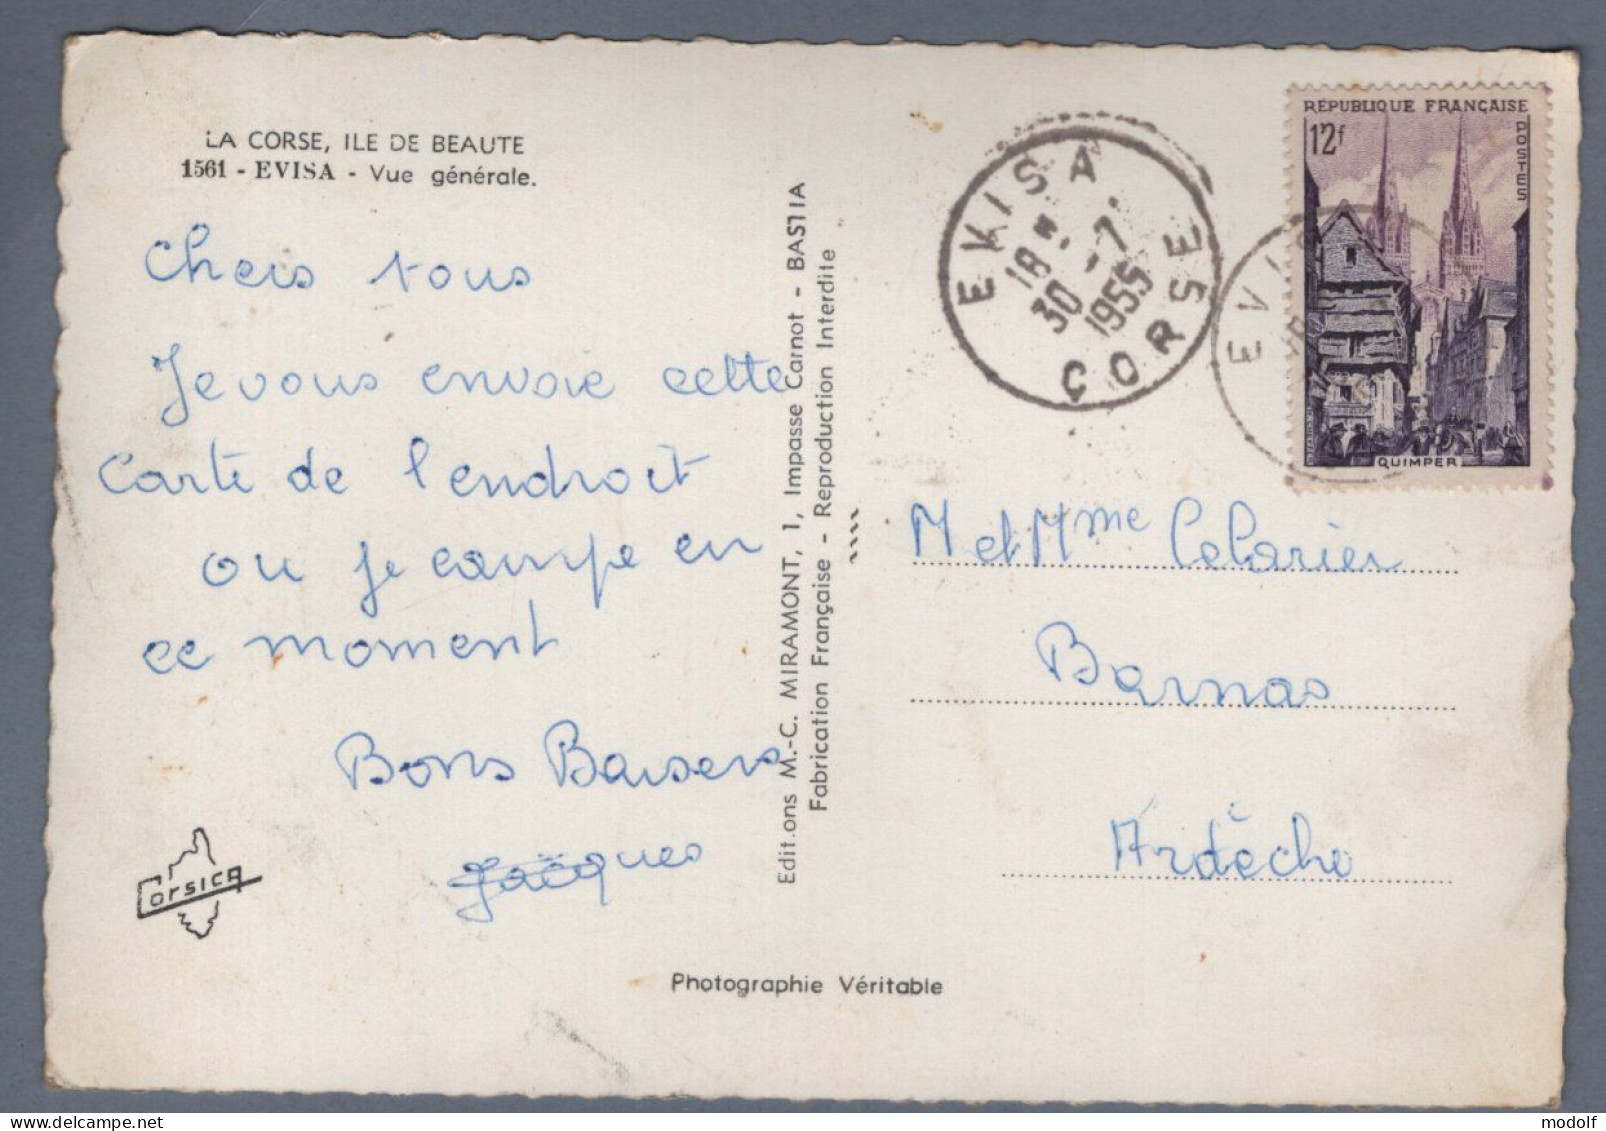 LA CORSE, ILE DE BEAUTE
1561 - EVISA - Vue générale.
Chers tous
Je vous envoie cette
carte de l'endroit
ou je campe en
ce moment
Bons Baisers
Jacques
Corsica
Editions M.-C. MIRAMONT, 1, Impasse Carnot - BASTIA
Fabrication Française - Reproduction Interdite
Photographie Véritable
EVISA
18 H.
30 -7
1955
CORSE
RÉPUBLIQUE FRANÇAISE
12f
POSTES
QUIMPER
EVI
M et Mme Celarier
Barnas
Ardèche
modolf